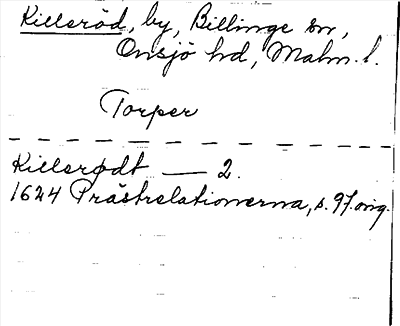 Killeröd, by, Billinge sn,
Onsjö hd, Malm. l.
Torper
Killerødt — 2.
1624 Prästrelationerna, s. 97. orig.